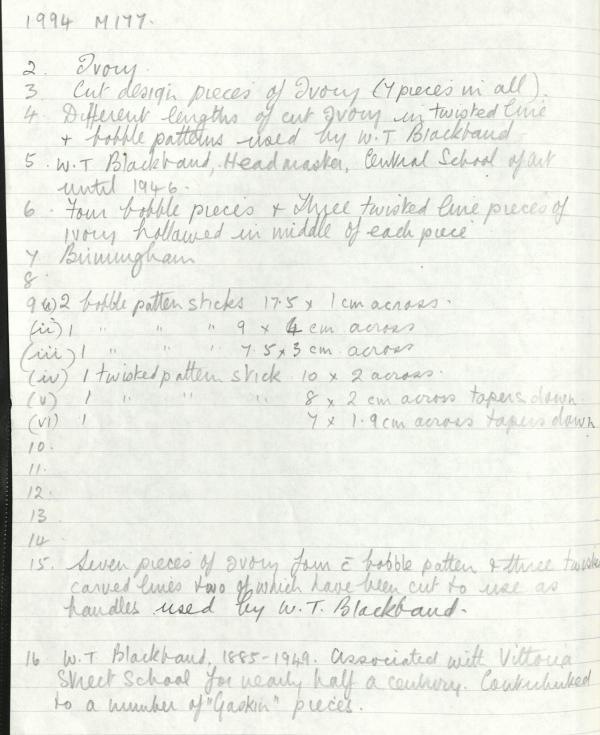 1994 M177.
2. Ivory.
3. Cut design pieces of Ivory (7 pieces in all).
4. Different lengths of cut Ivory in twisted line
+ bobble patterns used by W.T Blackband
5. W.T Blackband, Headmaster, Central School of art
until 1946.
6. Four bobble pieces + three twisted line pieces of
Ivory hollowed in middle of each piece
7 Birmingham
8.
9 (i) 2 bobble patten sticks 17.5 x 1 cm across.
(ii) 1 " " " 9 x 4 cm across
(iii) 1 " " " 7.5 x 3 cm across
(iv) 1 twisted pattern stick 10 x 2 across.
(v) 1 " " " 8 x 2 cm across tapers down.
(vi) 1 7 x 1.9cm across tapers down
10.
11.
12.
13
14
15. Seven pieces of Ivory four c̄ bobble patten & three twisted
carved lines two of which have been cut to use as
handles used by W.T. Blackband.
16 W.T Blackband, 1885-1949. Associated with Vittoria
Street School for nearly half a century. Contributed
to a number of "Gaskin" pieces.